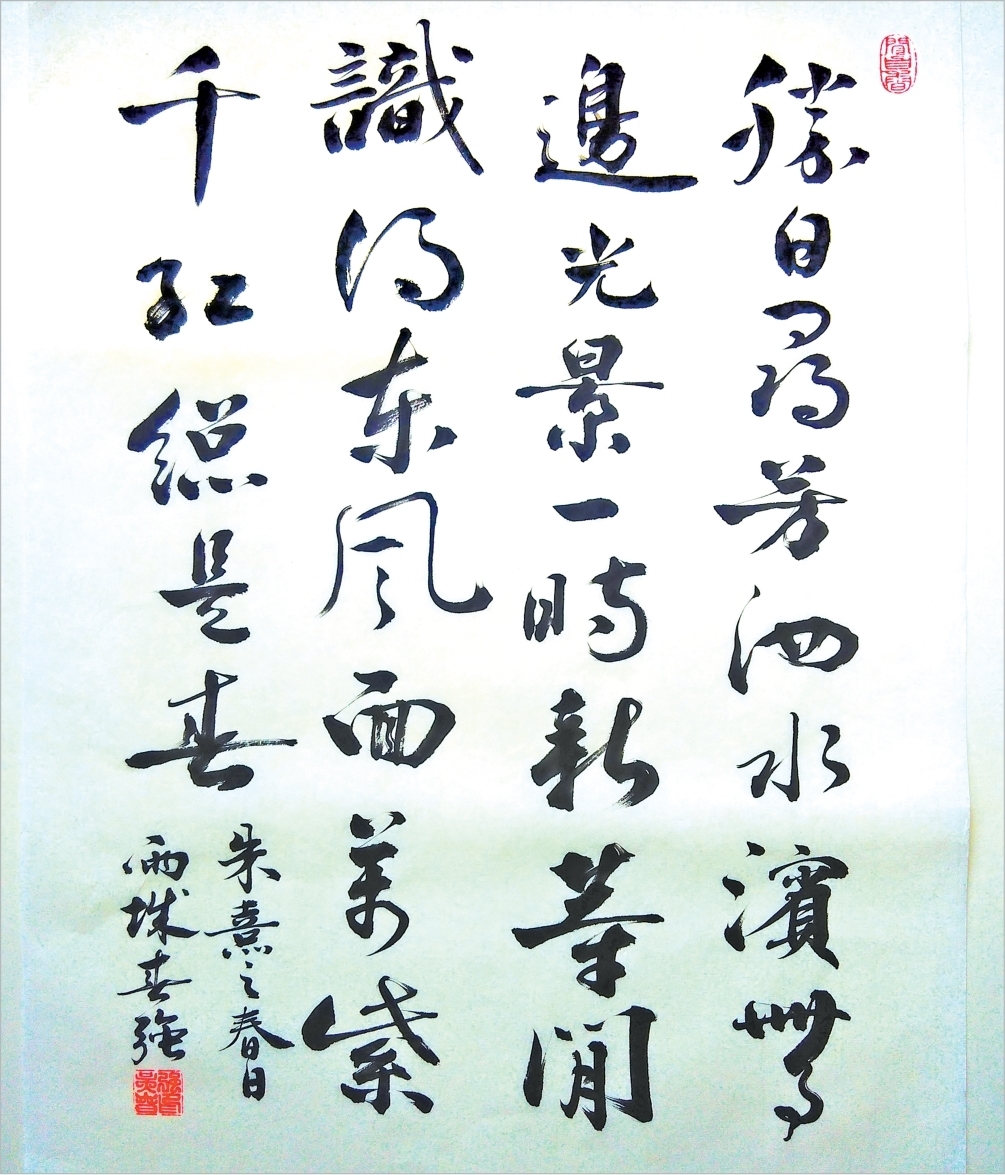 勝日尋芳泗水濱無
邊光景一時新等閒
識得东風面萬紫
千紅總是春
朱熹之春日
雨城春強